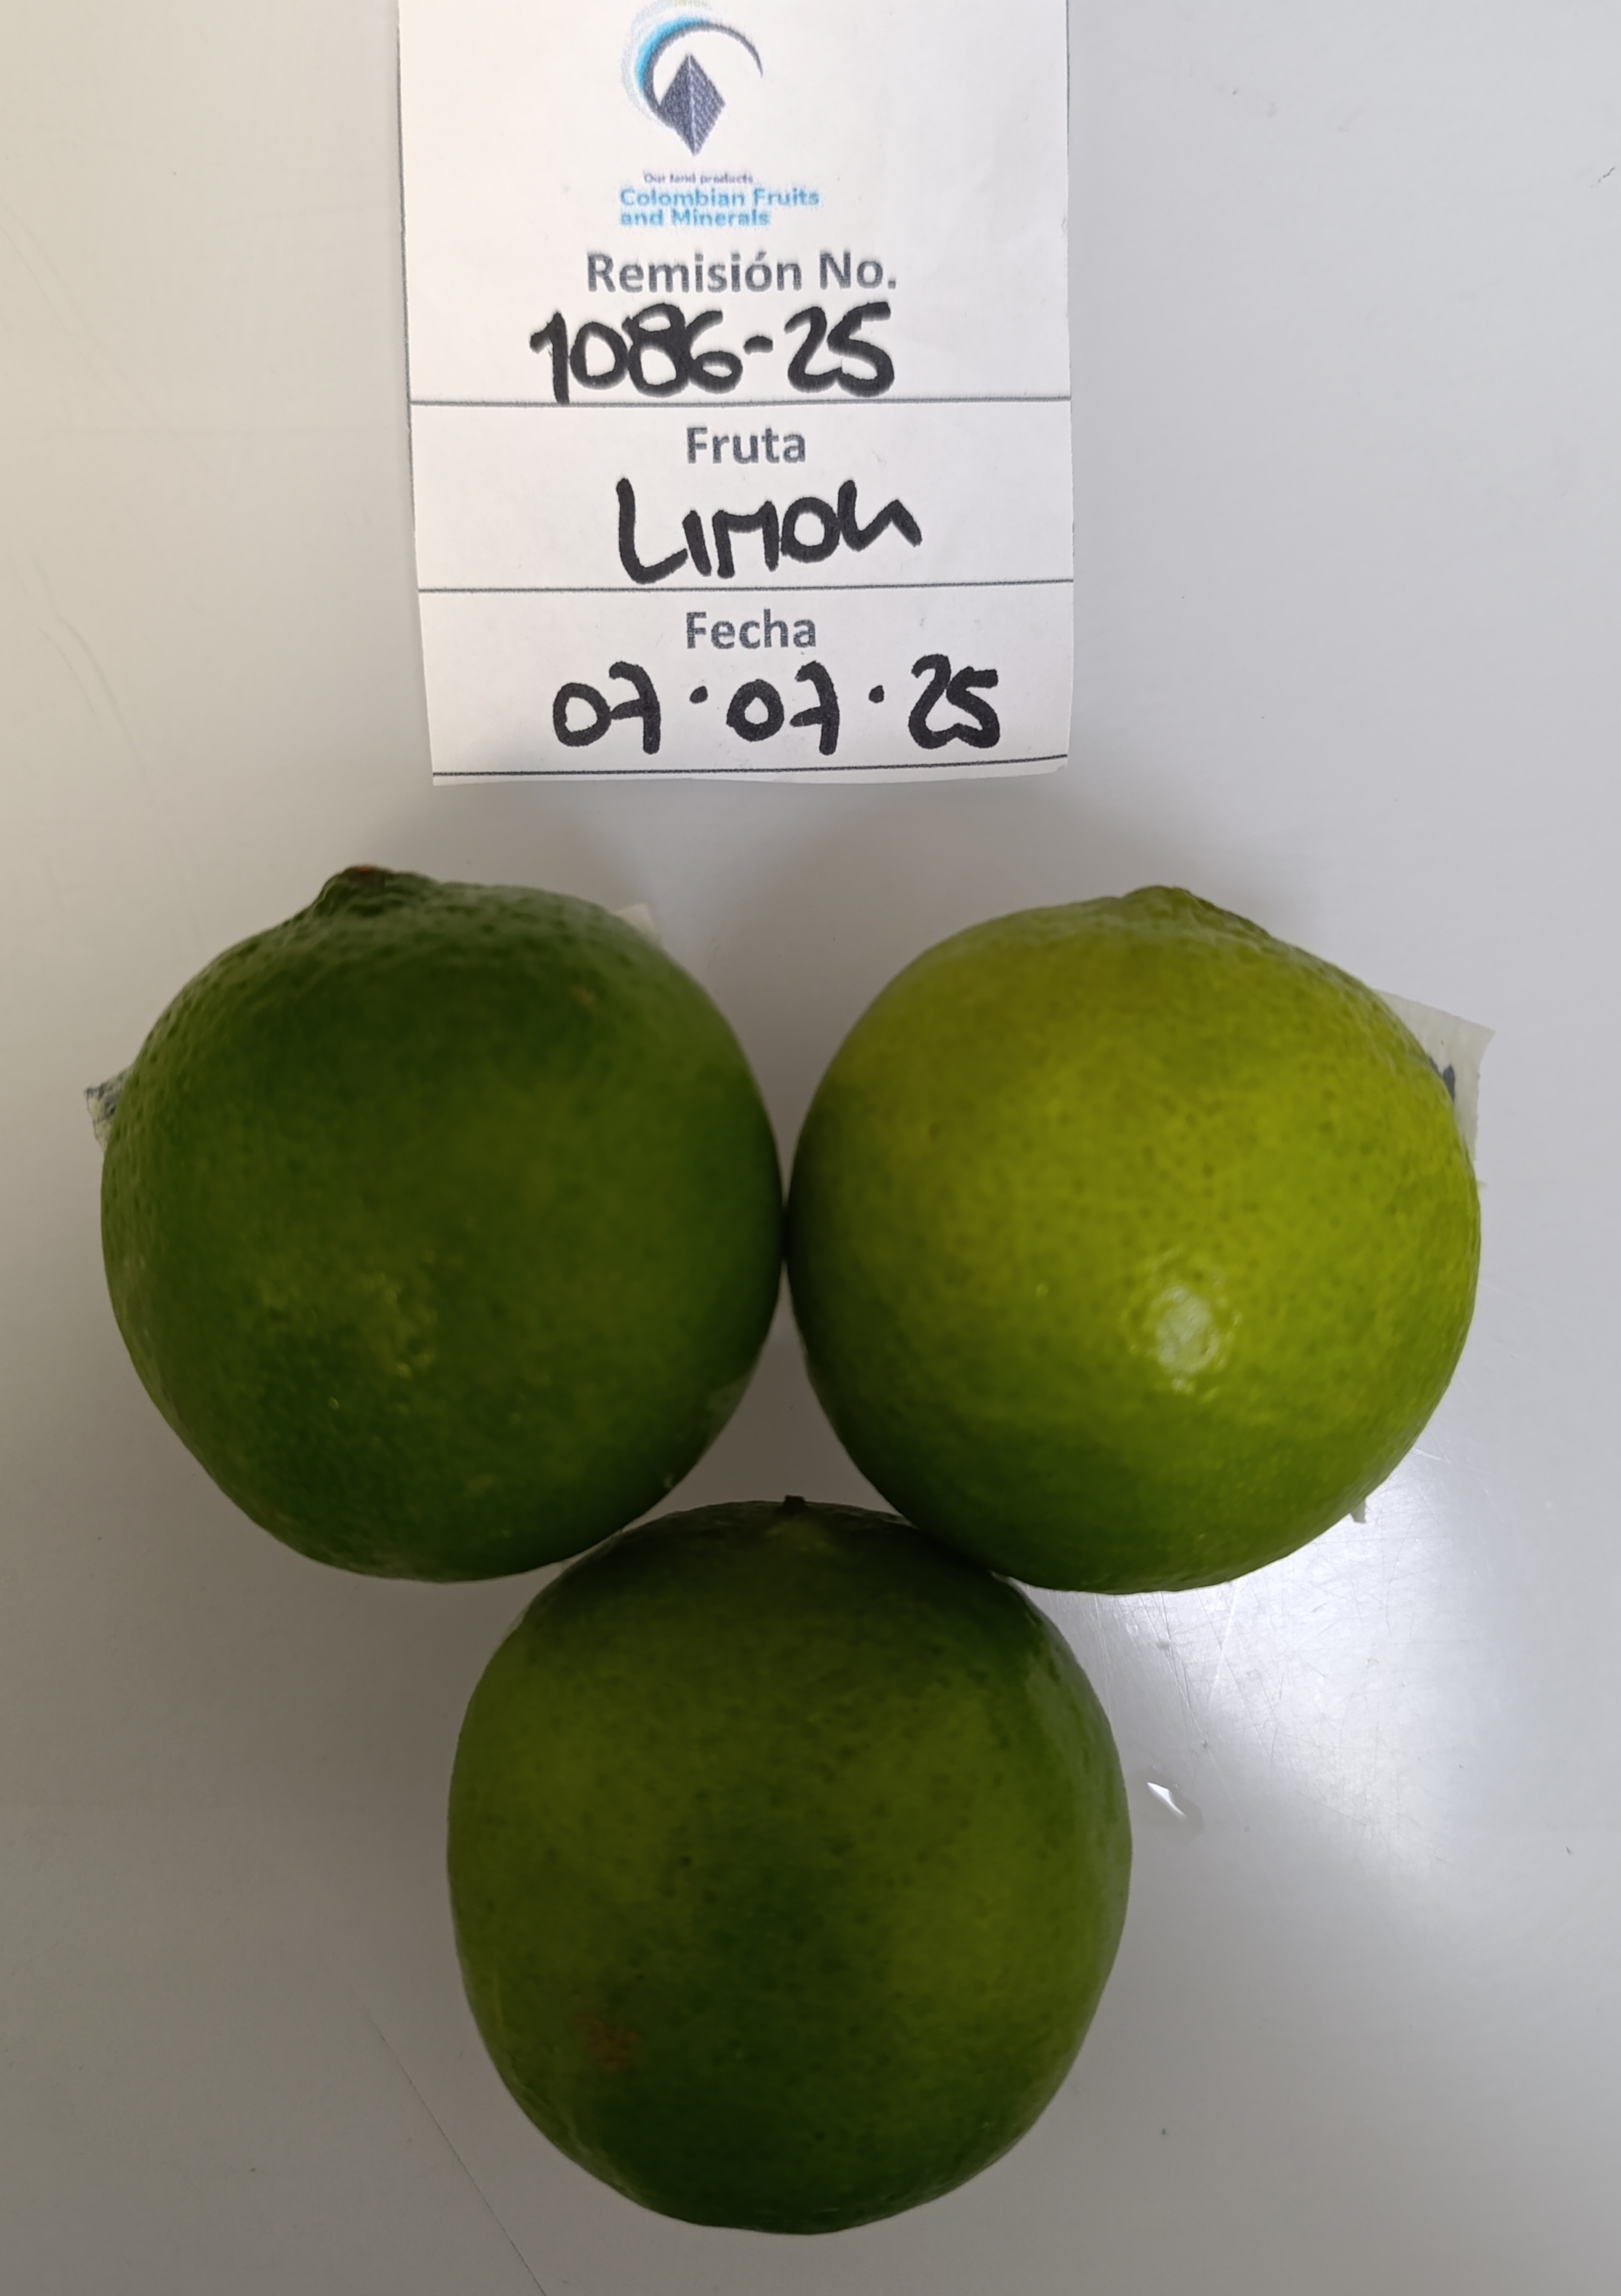 Our land products
Colombian Fruits
and Minerals
Remisión No.
1086-25
Fruta
LIMON
Fecha
07·07·25